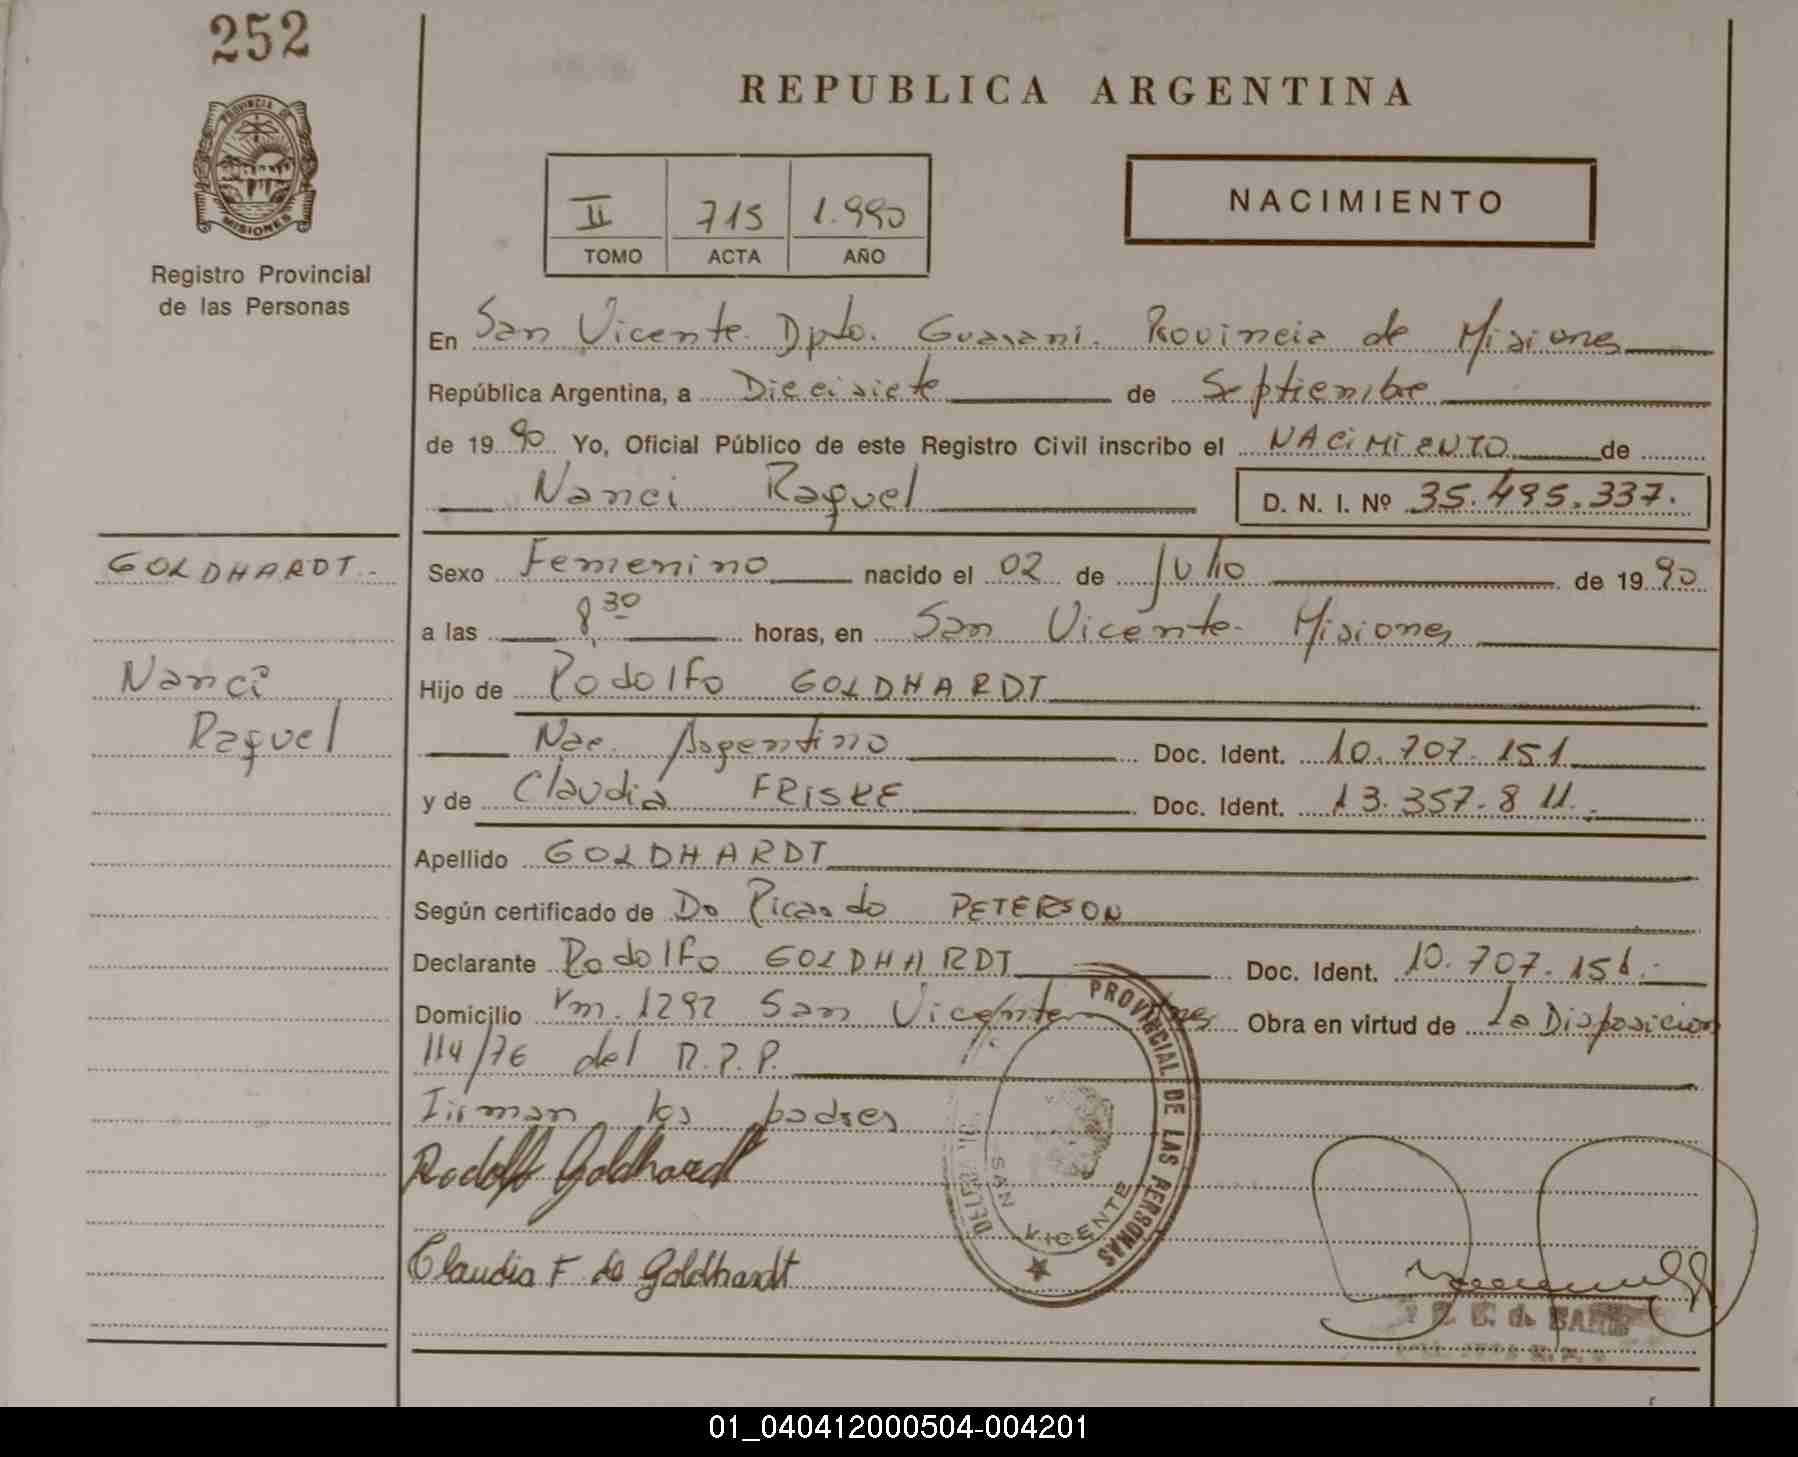 252
PROVINCIA DE
MISIONES
Registro Provincial
de las Personas
REPUBLICA ARGENTINA
II 715 1.990
TOMO ACTA AÑO
NACIMIENTO
En San Vicente. Dpto. Guarani. Provincia de Misiones
República Argentina, a Diecisiete de Septiembre
de 1990 Yo, Oficial Público de este Registro Civil inscribo el NACIMIENTO de
Nanci Raquel D. N. I. Nº 35.495.337.
GOLDHARDT.-
Nanci
Raquel
Sexo Femenino nacido el 02 de Julio de 1990
a las 8,30 horas, en San Vicente- Misiones
Hijo de Rodolfo GOLDHARDT
Nac. Argentino Doc. Ident. 10.707.151
y de Claudia FRISKE Doc. Ident. 13.357.811.
Apellido GOLDHARDT
Según certificado de Dr Ricardo PETERSON
Declarante Rodolfo GOLDHARDT Doc. Ident. 10.707.151.-
Domicilio Km. 1292 San Vicente Mnes Obra en virtud de la Disposicion
114/76 del R.P.P.
Firman los padres
Rodolfo Goldhardt
Claudia F. de Goldhardt
PROVINCIAL DE LAS PERSONAS
SAN VICENTE
01_040412000504-004201